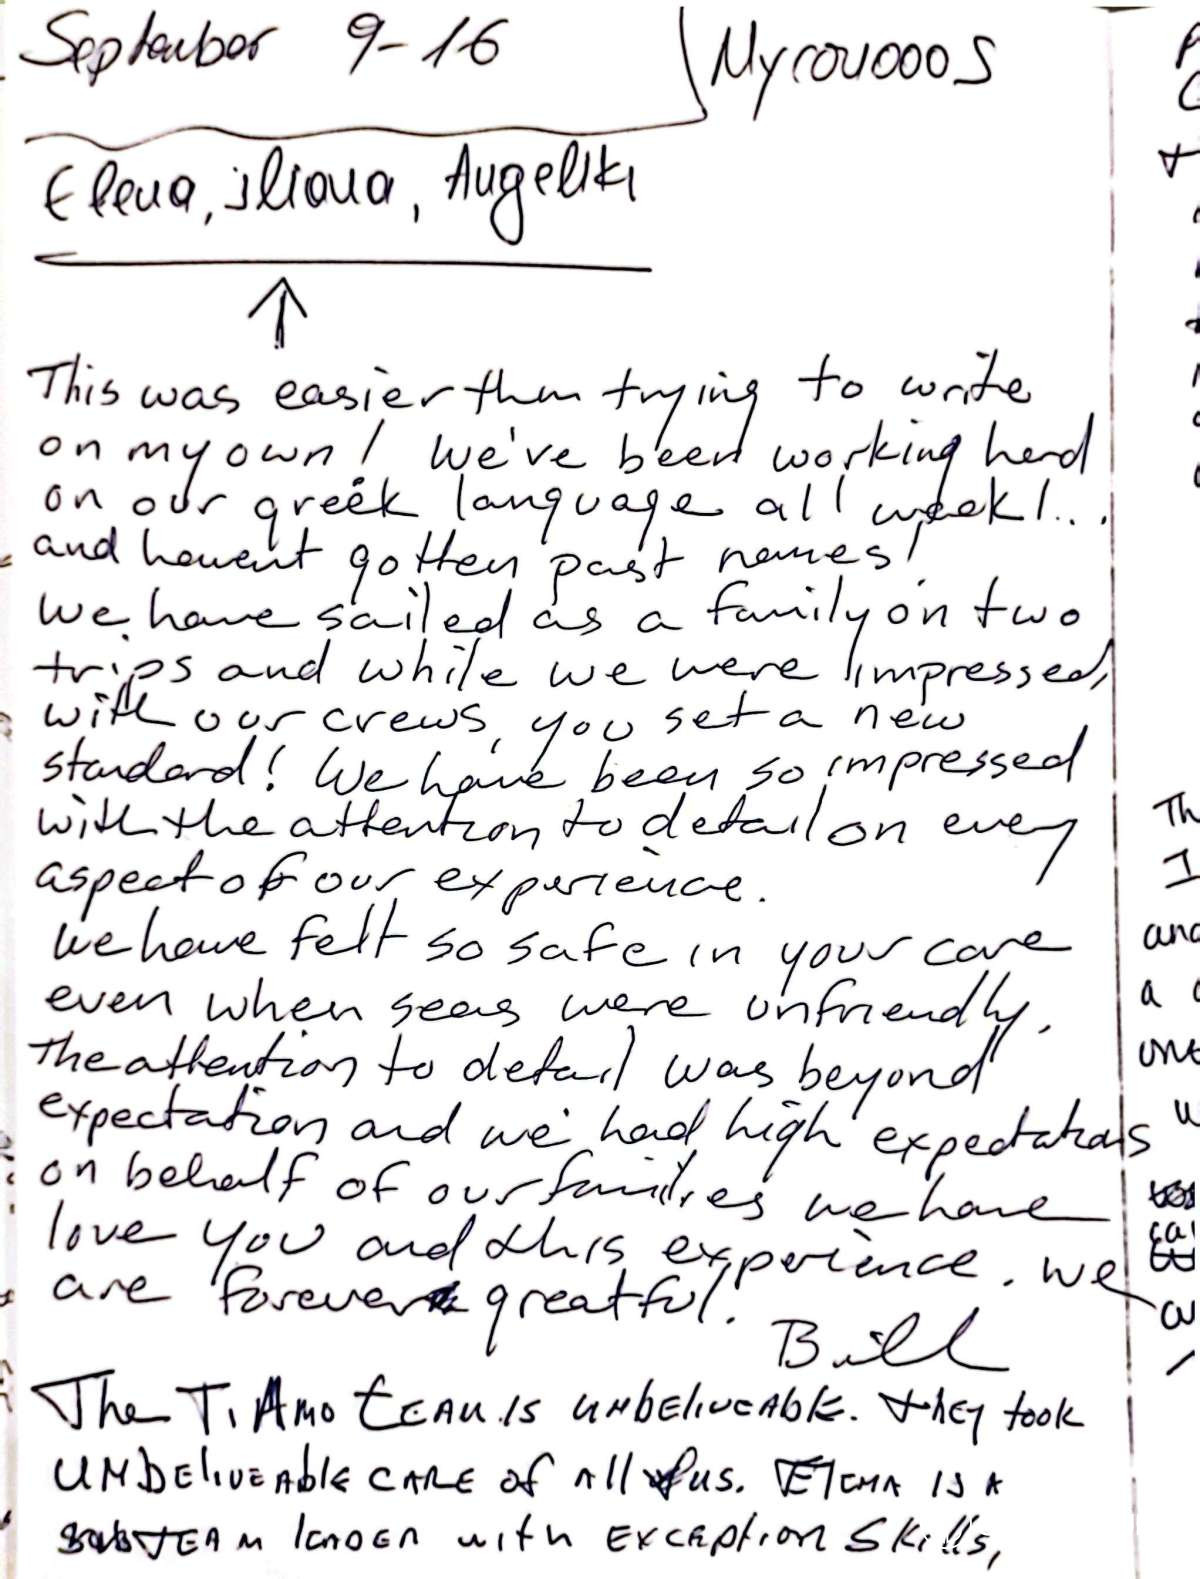 September 9-16
Elena, iliana, Angeliki
This was easier then trying to write
on my own! We've been working hard
on our greek language all week!...
and havent gotten past names!
We have sailed as a family on two
trips and while we were impressed,
with our crews, you set a new
standard! We have been so impressed
with the attention to detail on every
aspect of our experience.
We have felt so safe in your care
even when seas were unfriendly.
The attention to detail was beyond
expectation and we had high expectations
on behalf of our families we have
love you and this experience. We
are forever greatful.
Bill
The Ti Amo team is unbeliveable. They took
unbeliveable care of all of us. Elena is a
team leader with exception skills,